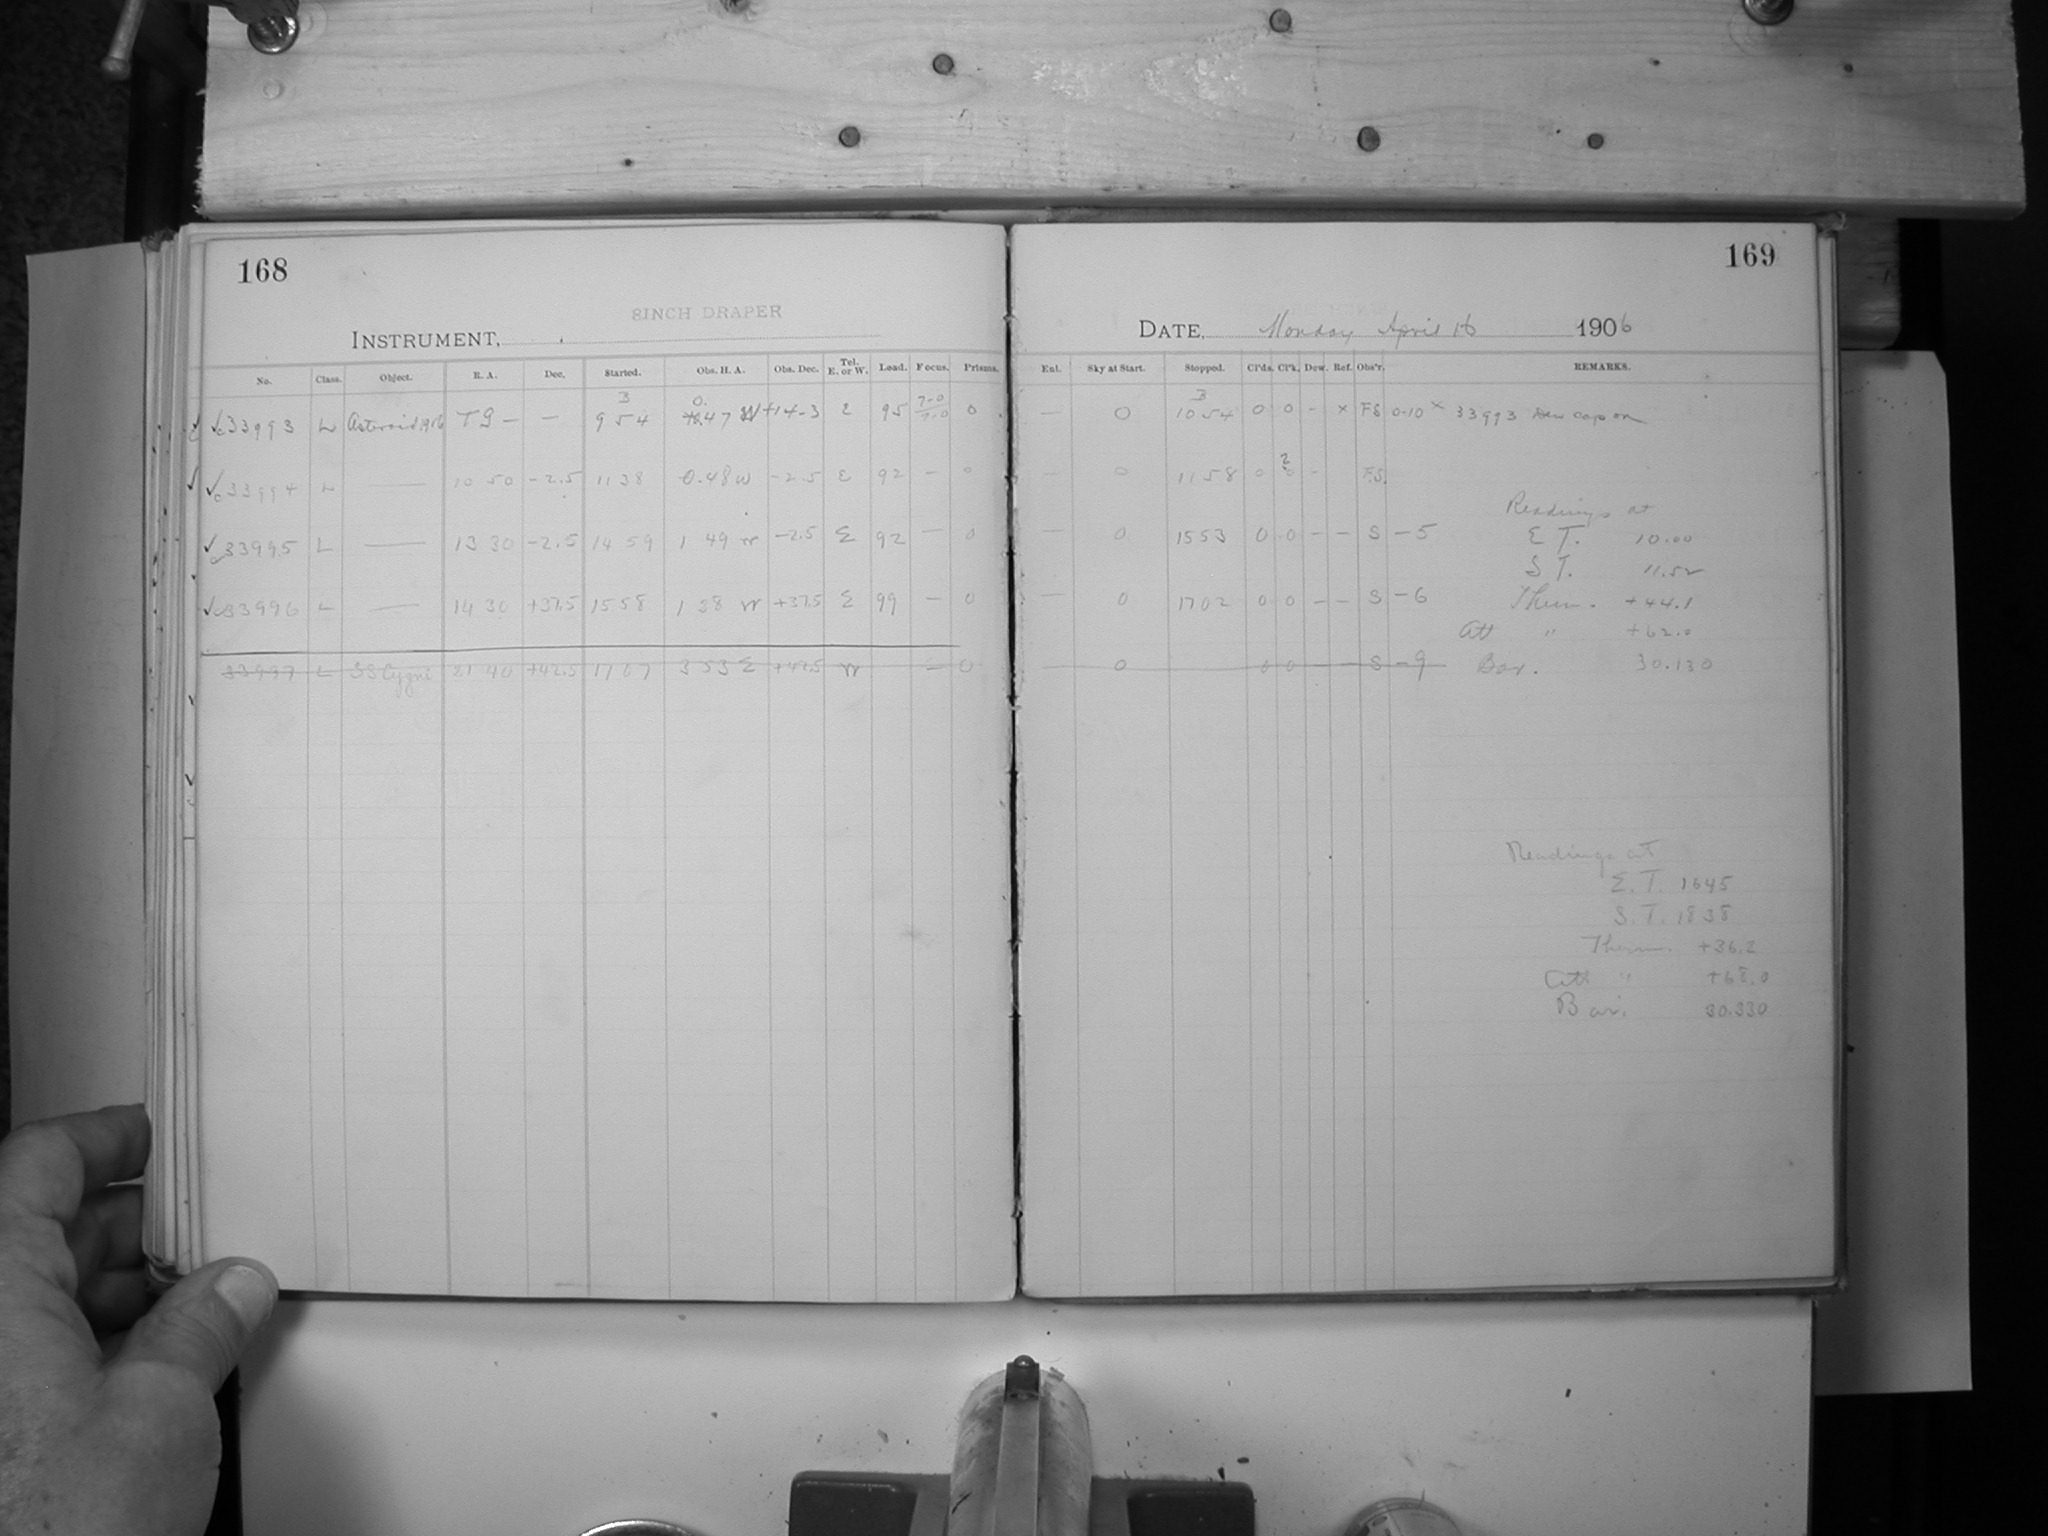 168
8INCH DRAPER
INSTRUMENT,
No. Class. Object. R. A. Dec. Started. Obs. H. A. Obs. Dec. Tel. E. or W. Lead. Focus. Prisms.
33993 L Asteroid 1906 T G — — 9 54 0. 47 W +14-3 E 95 7-0 7.0 0
33994 L — 10 50 -2.5 11 38 0.48 W -2.5 E 92 — 0
33995 L — 13 30 -2.5 14 59 1 49 W -2.5 E 92 — 0
33996 L — 14 30 +37.5 15 58 1 38 W +37.5 E 99 — 0
33997 L SS Cygni 21 40 +42.5 17 07 3 53 E +42.5 W 0
169
DATE, Monday April 16 1906
Ext. Sky at Start. Stopped. Cl'ds. Cl'k. Dew. Ref. Obs'r. REMARKS.
— 0 10 54 0 0 - x FS 0-10 x 33993 Dew cap on
— 0 11 58 0 2 - F.S.
— 0 15 53 0 0 - - S -5
— 0 17 02 0 0 - - S -6
— 0 0 0 — — S -9
Readings at
E T. 10.00
S T. 11.52
Therm. +44.1
Att " +62.0
Bar. 30.130
Readings at
E. T. 1645
S. T. 1838
Therm. +36.2
Att " +68.0
Bar. 30.330